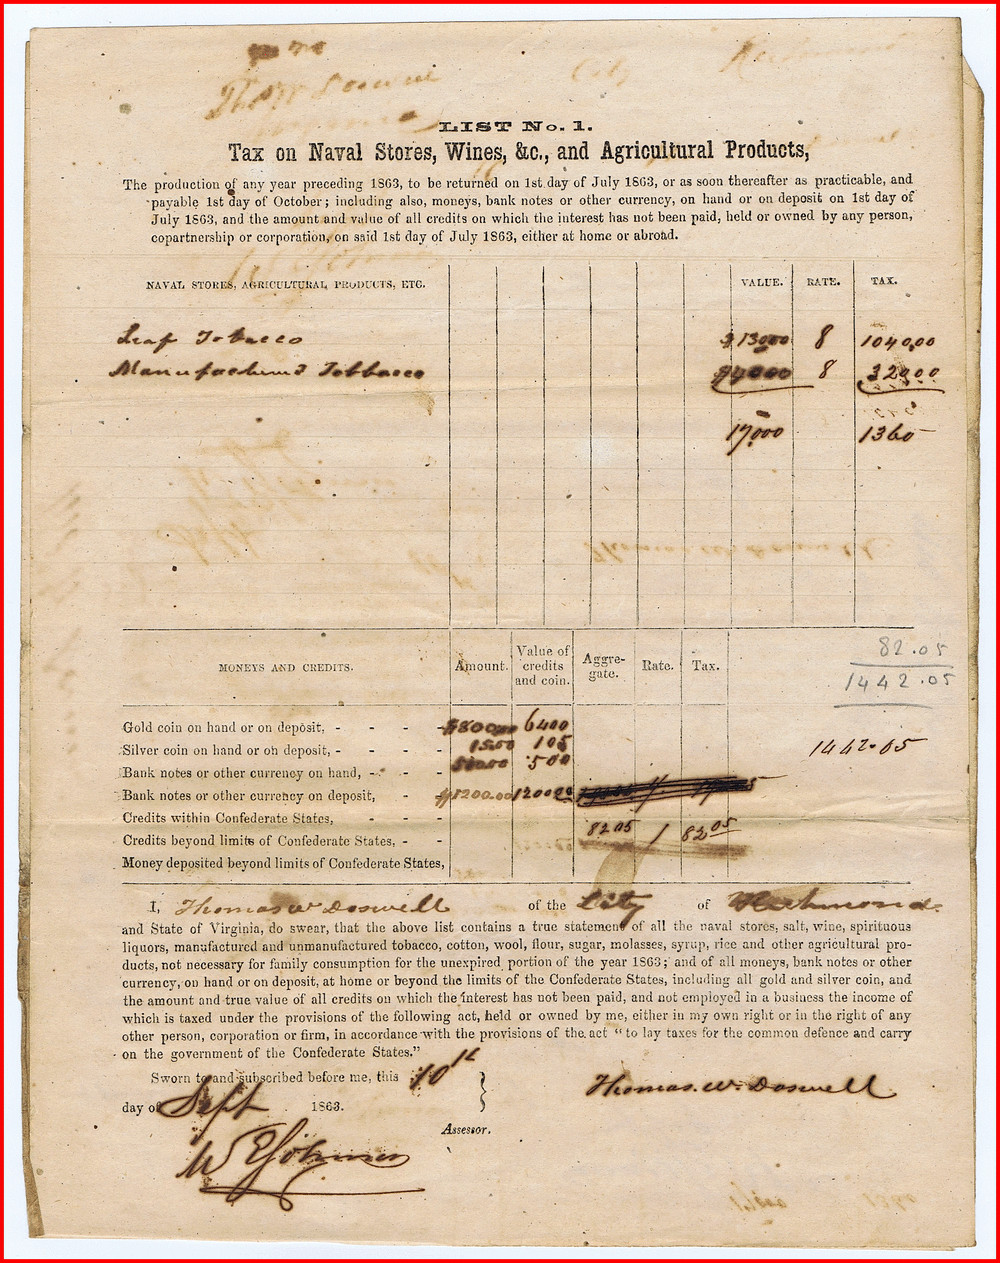 LIST No. 1.
Tax on Naval Stores, Wines, &c., and Agricultural Products,
The production of any year preceding 1863, to be returned on 1st day of July 1863, or as soon thereafter as practicable, and
payable 1st day of October; including also, moneys, bank notes or other currency, on hand or on deposit on 1st day of
July 1863, and the amount and value of all credits on which the interest has not been paid, held or owned by any person,
copartnership or corporation, on said 1st day of July 1863, either at home or abroad.
NAVAL STORES, AGRICULTURAL PRODUCTS, ETC. VALUE. RATE. TAX.
Leaf Tobacco $13000 8 1040,00
Manufactured Tobbacco $4000 8 320,00
17,000 1360
82.05
1442.05
MONEYS AND CREDITS. Amount. Value of credits and coin. Aggre-gate. Rate. Tax.
Gold coin on hand or on deposit, - - - - $800,00 6400
Silver coin on hand or on deposit, - - - - 15.00 105 1442.05
Bank notes or other currency on hand, - - - 500.00 500
Bank notes or other currency on deposit, - - $1200.00 1200.00
Credits within Confederate States, - - -
Credits beyond limits of Confederate States, - - 8205 1 82.05
Money deposited beyond limits of Confederate States,
I, Thomas W Doswell of the City of Richmond
and State of Virginia, do swear, that the above list contains a true statement of all the naval stores, salt, wine, spirituous
liquors, manufactured and unmanufactured tobacco, cotton, wool, flour, sugar, molasses, syrup, rice and other agricultural pro-
ducts, not necessary for family consumption for the unexpired portion of the year 1863; and of all moneys, bank notes or other
currency, on hand or on deposit, at home or beyond the limits of the Confederate States, including all gold and silver coin, and
the amount and true value of all credits on which the interest has not been paid, and not employed in a business the income of
which is taxed under the provisions of the following act, held or owned by me, either in my own right or in the right of any
other person, corporation or firm, in accordance with the provisions of the act "to lay taxes for the common defence and carry
on the government of the Confederate States."
Sworn to and subscribed before me, this 10th
day of Sept 1863.
Thomas. W. Doswell
Assessor.
W E Johnson